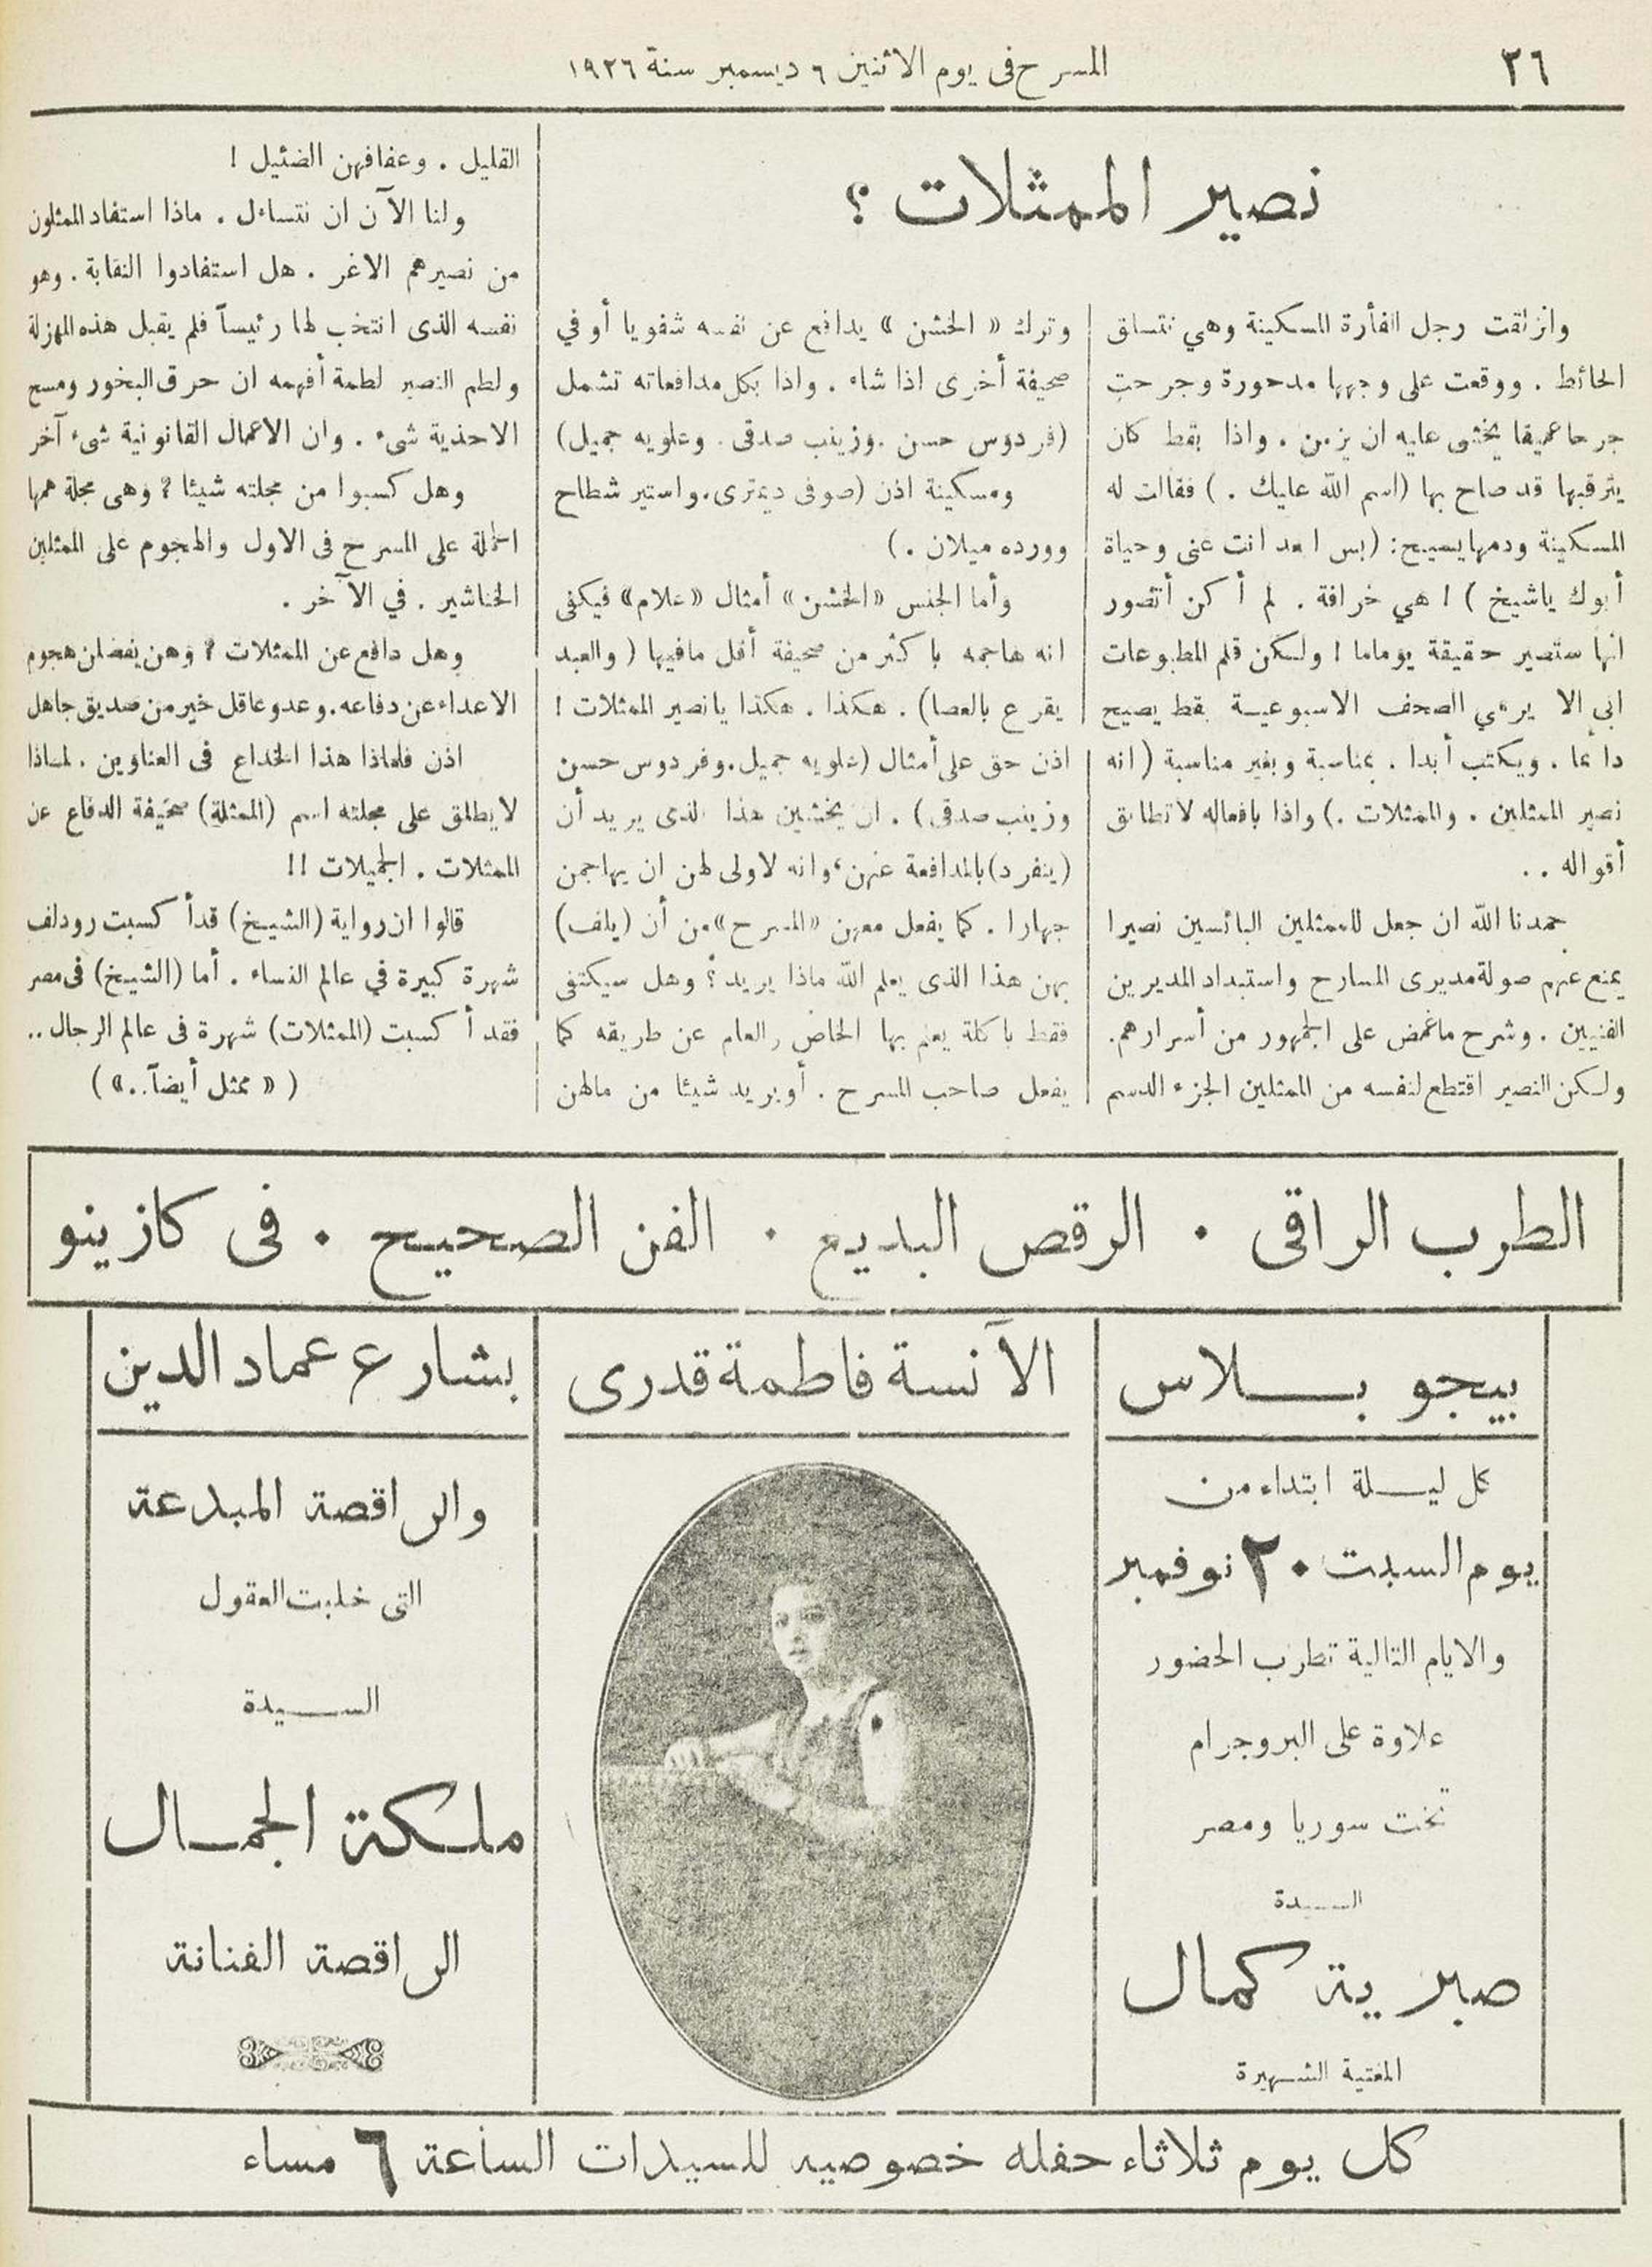 ٢٦
المسرح فى يوم الاثنين ٦ ديسمبر سنة ١٩٢٦
نصير الممثلات ؟
وانزلقت رجل الفأرة المسكينة وهي تتسلق
الحائط . ووقعت على وجهها مدحورة وجرحت
جرحا عميقا يخشى عليه ان يزمن . واذا بقط كان
يترقبها قد صاح بها (اسم الله عليك .) فقالت له
المسكينة ودمها يسيح: (بس ابعد انت عنى وحياة
أبوك ياشيخ ) ! هي خرافة . لم أكن أتصور
انها ستصير حقيقة يوماما ! ولكن قلم المطبوعات
ابى الا يرمي الصحف الاسبوعية بقط يصيح
دائما . ويكتب أبدا . بمناسبة وبغير مناسبة (انه
نصير الممثلين . والممثلات .) واذا بافعاله لاتطابق
أقواله . .
حمدنا الله ان جعل للممثلين البائسين نصيرا
يمنع عنهم صولة مديرى المسارح واستبداد المديرين
الفنيين . وشرح ماغمض على الجمهور من أسرارهم.
ولكن النصير اقتطع لنفسه من الممثلين الجزء الدسم
وترك « الخشن » يدافع عن نفسه شفويا أو في
صحيفة أخرى اذا شاء . واذا بكل مدافعاته تشمل
(فردوس حسن .وزينب صدقى . وعلويه جميل)
ومسكينة اذن (صوفى ديمترى . واستير شطاح
وورده ميلان .)
وأما الجنس «الخشن» أمثال «علام» فيكفى
انه هاجمه باكثر من صحيفة أقل مافيها ( والعبد
يقرع بالعصا) . هكذا . هكذا يانصير الممثلات !
اذن حق على أمثال (علويه جميل.وفردوس حسن
وزينب صدقى) . ان يخشين هذا الذى يريد أن
(ينفرد) بالمدافعة عنهن، وانه لاولى لهن ان يهاجمن
جهارا . كما يفعل معهن «المسرح» من أن (يلف)
بهن هذا الذى يعلم الله ماذا يريد ؟ وهل سيكتفى
فقط باكلة يعلم بها الخاص والعام عن طريقه كما
يفعل صاحب المسرح . أويريد شيئا من مالهن
القليل . وعفافهن الضئيل !
ولنا الآن ان نتساءل . ماذا استفاد الممثلون
من نصيرهم الاغر . هل استفادوا النقابة . وهو
نفسه الذى انتخب لها رئيساً فلم يقبل هذه المهزلة
ولطم النصير لطمة أفهمه ان حرق البخور ومسح
الاحذية شىء . وان الاعمال القانونية شىء آخر
وهل كسبوا من مجلته شيئا ؟ وهى مجلة همها
الحملة على المسرح فى الاول والهجوم على الممثلين
الخناشير . في الآخر .
وهل دافع عن الممثلات ؟ وهن يفضلن هجوم
الاعداء عن دفاعه. وعدو عاقل خير من صديق جاهل
اذن فلماذا هذا الخداع فى العناوين . لماذا
لا يطلق على مجلته اسم (الممثلة) صحيفة الدفاع عن
الممثلات . الجميلات !!
قالوا ان رواية (الشيخ) قد أكسبت رودلف
شهرة كبيرة في عالم النساء . أما (الشيخ) فى مصر
فقد أكسبت (الممثلات) شهرة فى عالم الرجال ..
( « ممثل أيضاً..» )
الطرب الراقى . الرقص البديع . الفن الصحيح . فى كازينو
بيجو بلاس
كل ليلة ابتداء من
يوم السبت ٢٠ نوفمبر
والايام التالية تطرب الحضور
علاوة على البروجرام
تخت سوريا ومصر
السيدة
صبرية كمال
المغنية الشهيرة
الآنسة فاطمة قدرى
بشارع عماد الدين
والراقصة المبدعة
التى خلبت العقول
السيدة
ملكة الجمال
الراقصة الفنانة
كل يوم ثلاثاء حفله خصوصيه للسيدات الساعة ٦ مساء